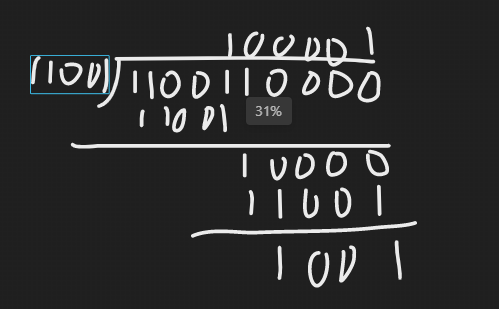 100001
11001)1100110000
11001
31%
10000
11001
1001